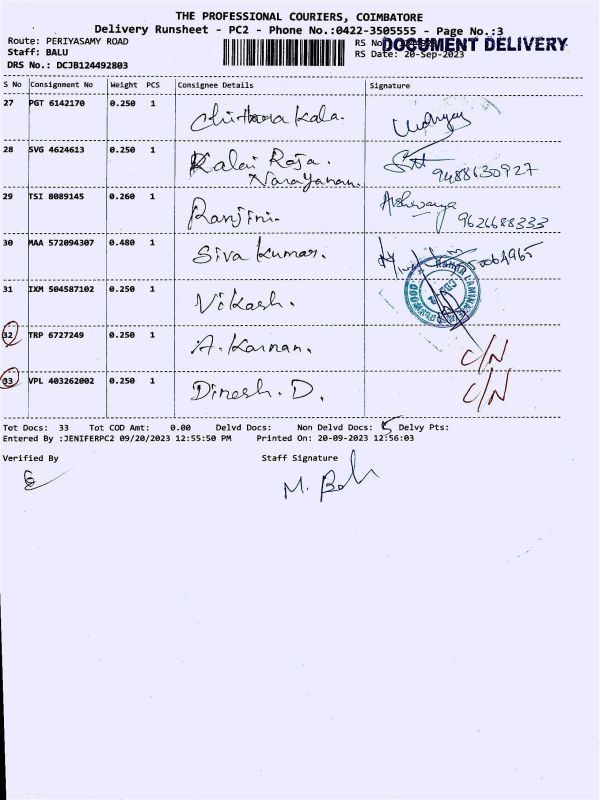 THE PROFESSIONAL COURIERS, COIMBATORE
Delivery Runsheet - PC2 - Phone No.:0422-3505555 - Page No.:3
Route: PERIYASAMY ROAD
RS No
DOCUMENT DELIVERY
Staff: BALU
RS Date: 20-Sep-2023
DRS No.: DCJB124492803
S No Consignment No Weight PCS Consignee Details Signature
27 PGT 6142170 0.250 1 Chithara Kala.
28 SVG 4624613 0.250 1 Kalai Raja. Narayanan. 9488630927
29 TSI 8089145 0.260 1 Ranjini. Aishwarya 9626688333
30 MAA 572094307 0.480 1 Siva Kumar.
31 IXM 504587102 0.250 1 Vikash.
32 TRP 6727249 0.250 1 A. Kannan. C/N
33 VPL 403262002 0.250 1 Dinesh. D. C/N
Tot Docs: 33 Tot COD Amt: 0.00 Delvd Docs: Non Delvd Docs: 5 Delvy Pts:
Entered By :JENIFERPC2 09/20/2023 12:55:50 PM Printed On: 20-09-2023 12:56:03
Verified By Staff Signature
M. Bal